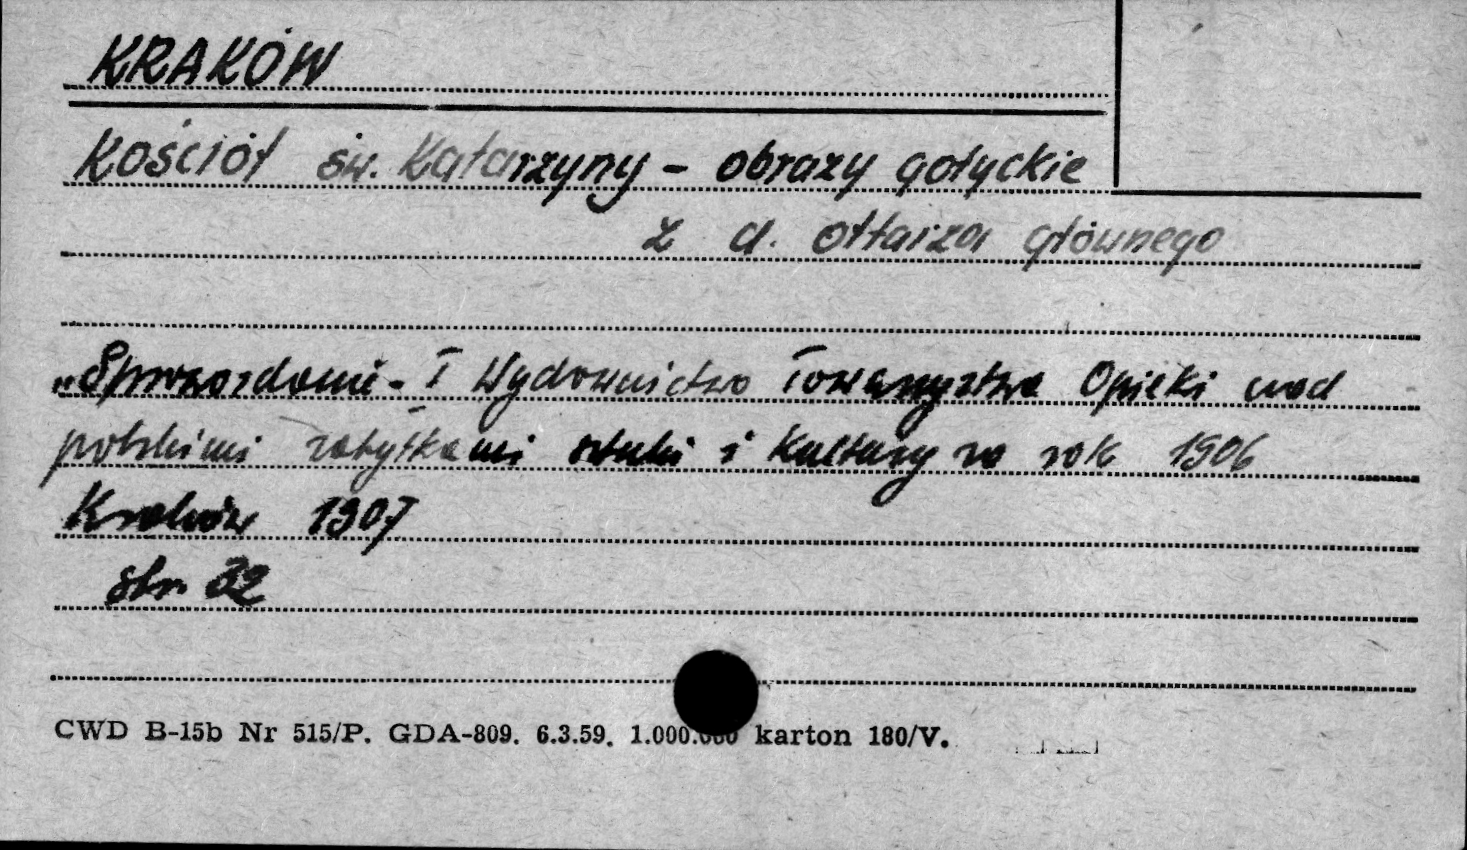 KRAKÓW
Kościół św. Katarzyny – obrazy gotyckie
z d. ołtarza głównego
„Sprawozdanie - I Wydawnictwo Towarzystwa Opieki nad
polskimi zabytkami sztuki i kultury za rok 1906
Kraków 1907
str. 32
CWD B-15b Nr 515/P. GDA-809. 6.3.59. 1.000.000 karton 180/V.